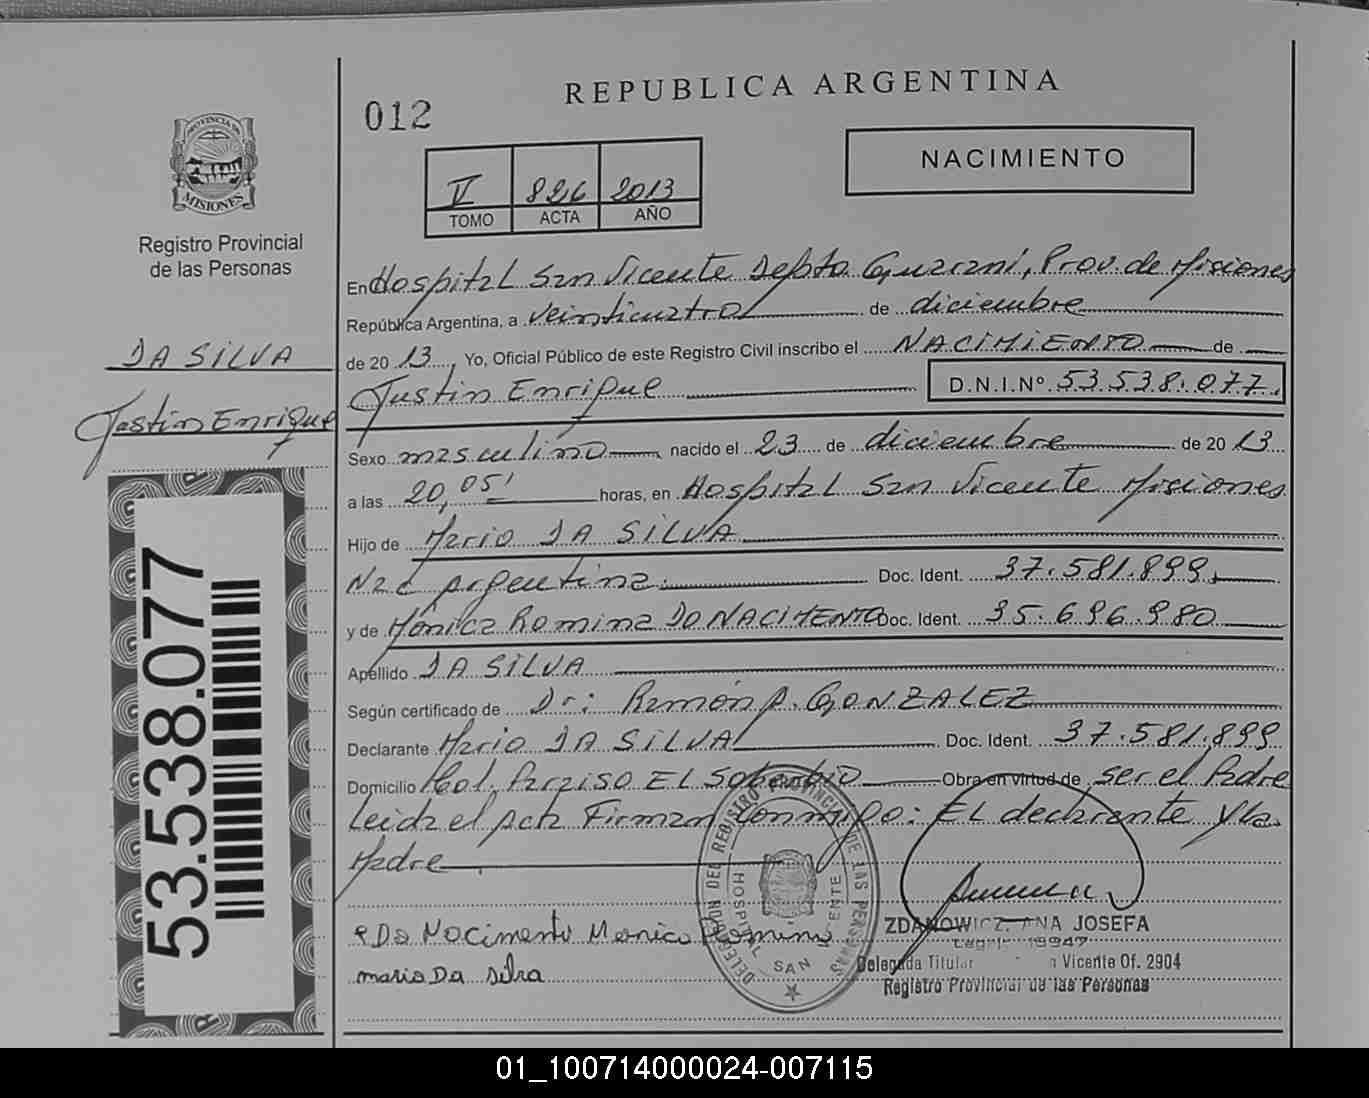 REPUBLICA ARGENTINA
012
NACIMIENTO
V 826 2013
TOMO ACTA AÑO
PROVINCIA DE MISIONES
Registro Provincial
de las Personas
DA SILVA
Justin Enrique
53.538.077
En Hospital San Vicente Depto Guaraní, Prov. de Misiones
República Argentina, a veinticuatro de diciembre
de 20 13, Yo, Oficial Público de este Registro Civil inscribo el NACIMIENTO de
Justin Enrique D.N.I.Nº 53.538.077
Sexo masculino nacido el 23 de diciembre de 20 13
a las 20,05' horas, en Hospital San Vicente Misiones
Hijo de Mario DA SILVA
Nac Argentina Doc. Ident. 37.581.899
y de Mónica Romina DO NACIMENTO Doc. Ident. 35.696.980
Apellido DA SILVA
Según certificado de Dr: Ramón A. GONZALEZ
Declarante Mario DA SILVA Doc. Ident. 37.581.899
Domicilio Col. Paraiso El Soberbio Obra en virtud de ser el Padre
Leida el Acta Firman conmigo: El declarante y la
Madre
Do Nacimento Monica Romina
mario Da silva
DELEGACION DEL REGISTRO PROVINCIAL DE LAS PERSONAS
HOSPITAL SAN VICENTE
ZDANOWICZ, ANA JOSEFA
Legajo 19947
Delegada Titular Vicente Of. 2904
Registro Provincial de las Personas
01_100714000024-007115